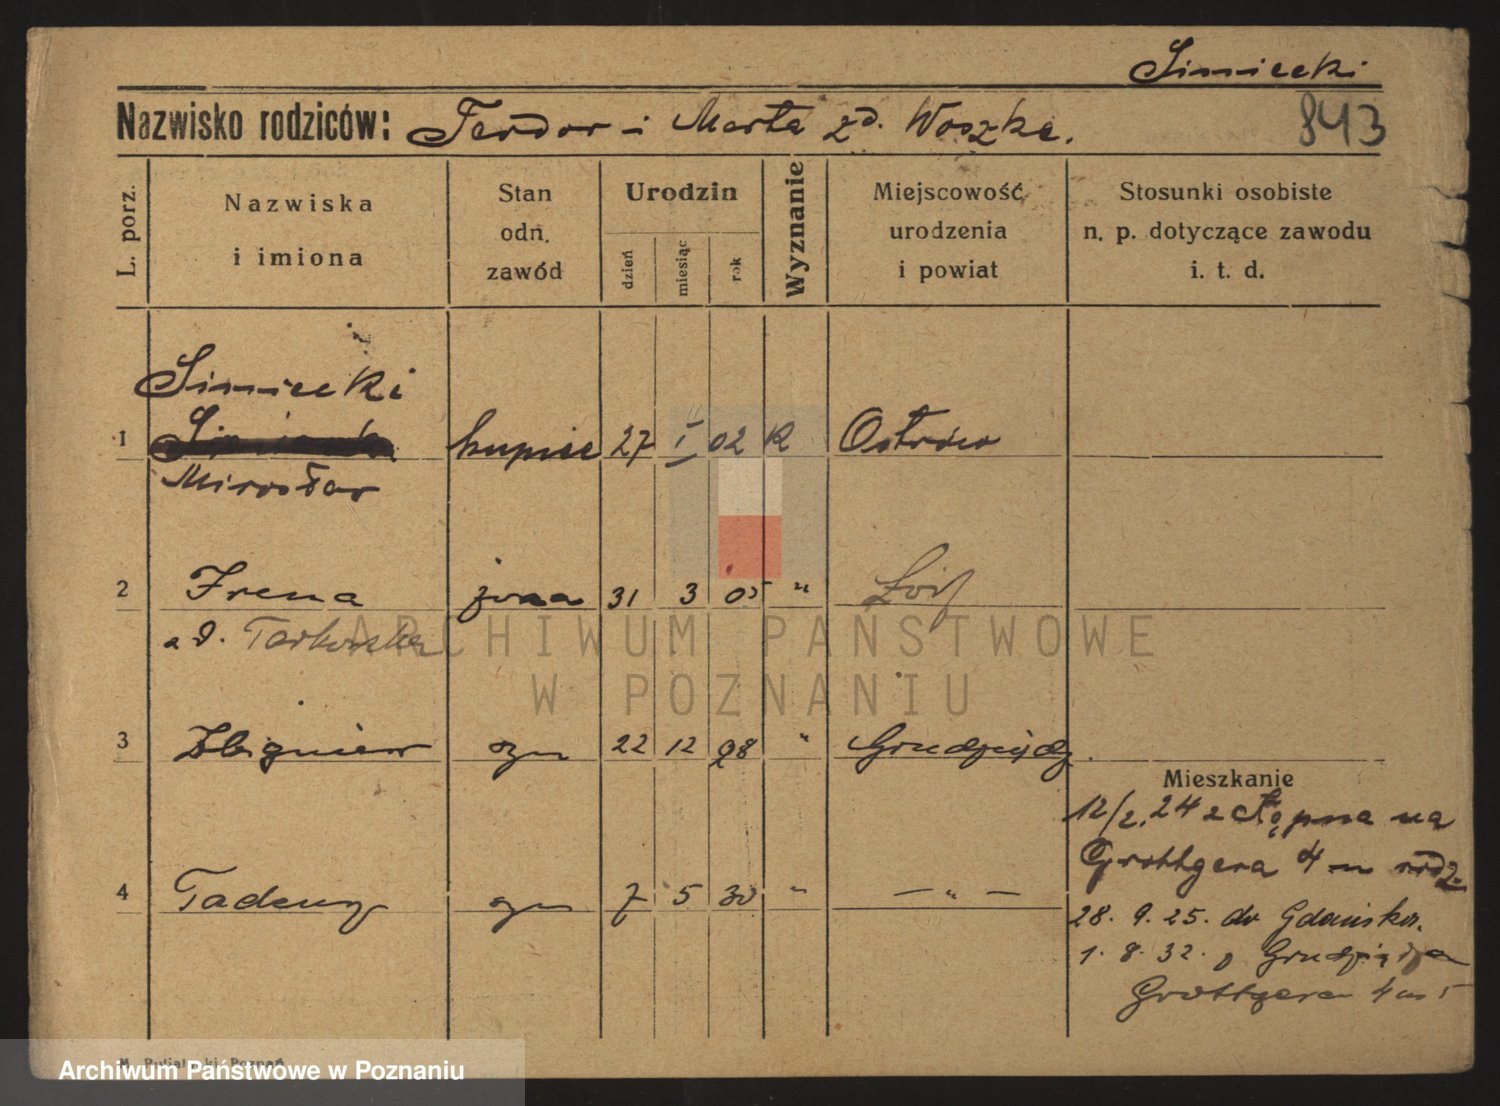 Simiecki
Nazwisko rodziców: Teodor i Marta zd. Woszke.
843
L. porz.
Nazwiska
i imiona
Stan
odn.
zawód
Urodzin
dzień
miesiąc
rok
Wyznanie
Miejscowość
urodzenia
i powiat
Stosunki osobiste
n. p. dotyczące zawodu
i. t. d.
Simiecki
1 kupiec 27 I 02 R Ostrów
Mirosław
2 Irena żona 31 3 05 "
zd. Tarkowska
3 Zbigniew syn 22 12 28 " Grudziądz
Mieszkanie
12/2. 24 na
Grottgera 4 m rodz.
4 Tadeusz syn 7 5 30 " — " —
28. 9. 25. do Gdańska.
1. 8. 32. z Grudziądza
Grottgera 4 m 5
ARCHIWUM PAŃSTWOWE
W POZNANIU
Archiwum Państwowe w Poznaniu